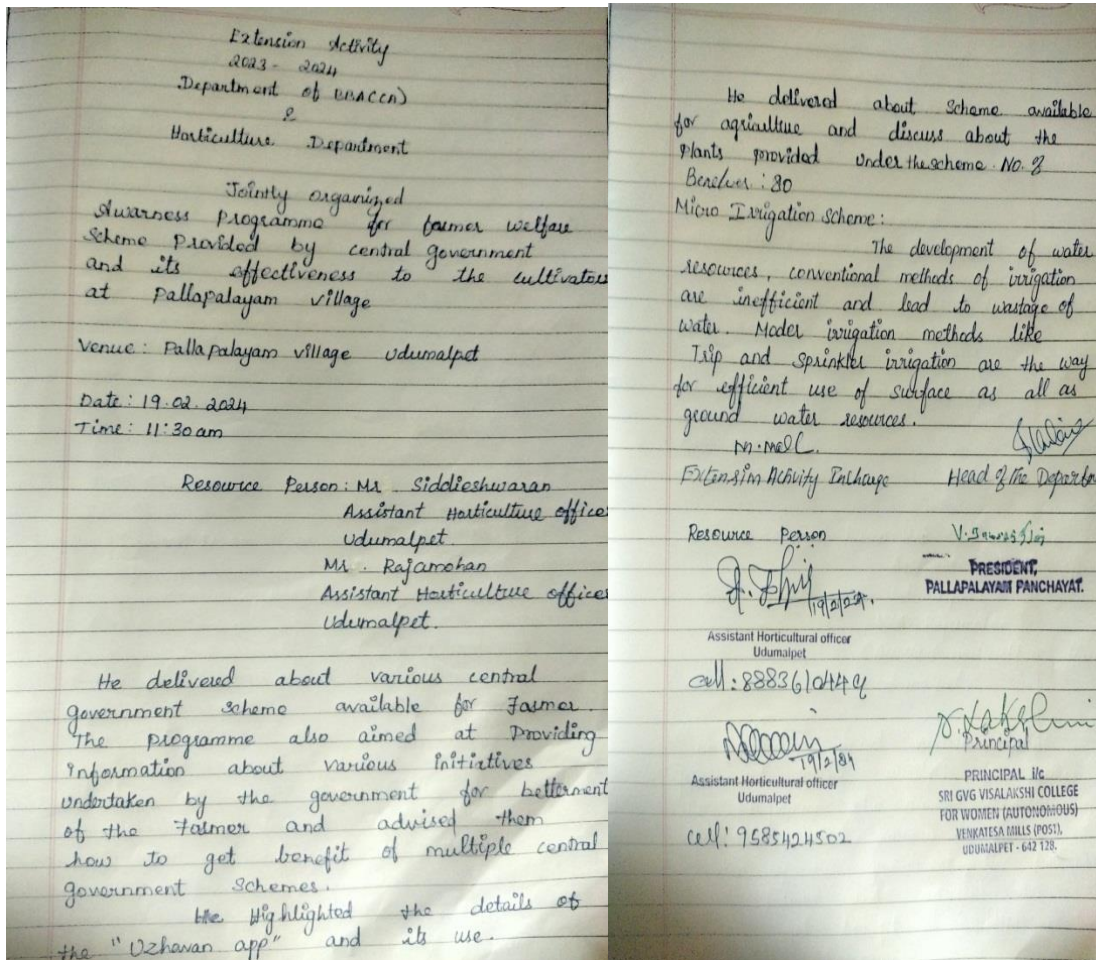 Extension Activity
2023 - 2024
Department of BBA(CA)
&
Horticulture Department
Jointly organized
Awarness programme for farmer welfare
Scheme Provided by central government
and its effectiveness to the cultivators
at Pallapalayam village
Venue: Pallapalayam village Udumalpet
Date: 19.02.2024
Time: 11:30 am
Resource Person: Mr. Siddieshwaran
Assistant Horticulture office
Udumalpet.
Mr. Rajamohan
Assistant Horticulture office
Udumalpet.
He delivered about various central
government scheme available for Farmer.
The programme also aimed at Providing
Information about various initiatives
undertaken by the government for betterment
of the Farmer and advised them
how to get benefit of multiple central
government Schemes.
He Highlighted the details of
the "Uzhavan app" and its use.
He delivered about Scheme available
for agriculture and discuss about the
plants provided under the scheme. No. of
: 30
Micro Irrigation Scheme:
The development of water
resources, conventional methods of irrigation
are inefficient and lead to wastage of
water. Moder irrigation methods like
Trip and Sprinkler irrigation are the way
for efficient use of surface as all as
ground water resources.
Extension Activity Incharge Head of the Departm
Resource Person
PRESIDENT,
PALLAPALAYAM PANCHAYAT.
19/2/24.
Assistant Horticultural officer
Udumalpet
cell: 8883610449
19/2/24
Assistant Horticultural officer
Udumalpet
cell: 9585424502
Principal
PRINCIPAL i/c
SRI GVG VISALAKSHI COLLEGE
FOR WOMEN (AUTONOMOUS)
VENKATESA MILLS (POST),
UDUMALPET - 642 128.